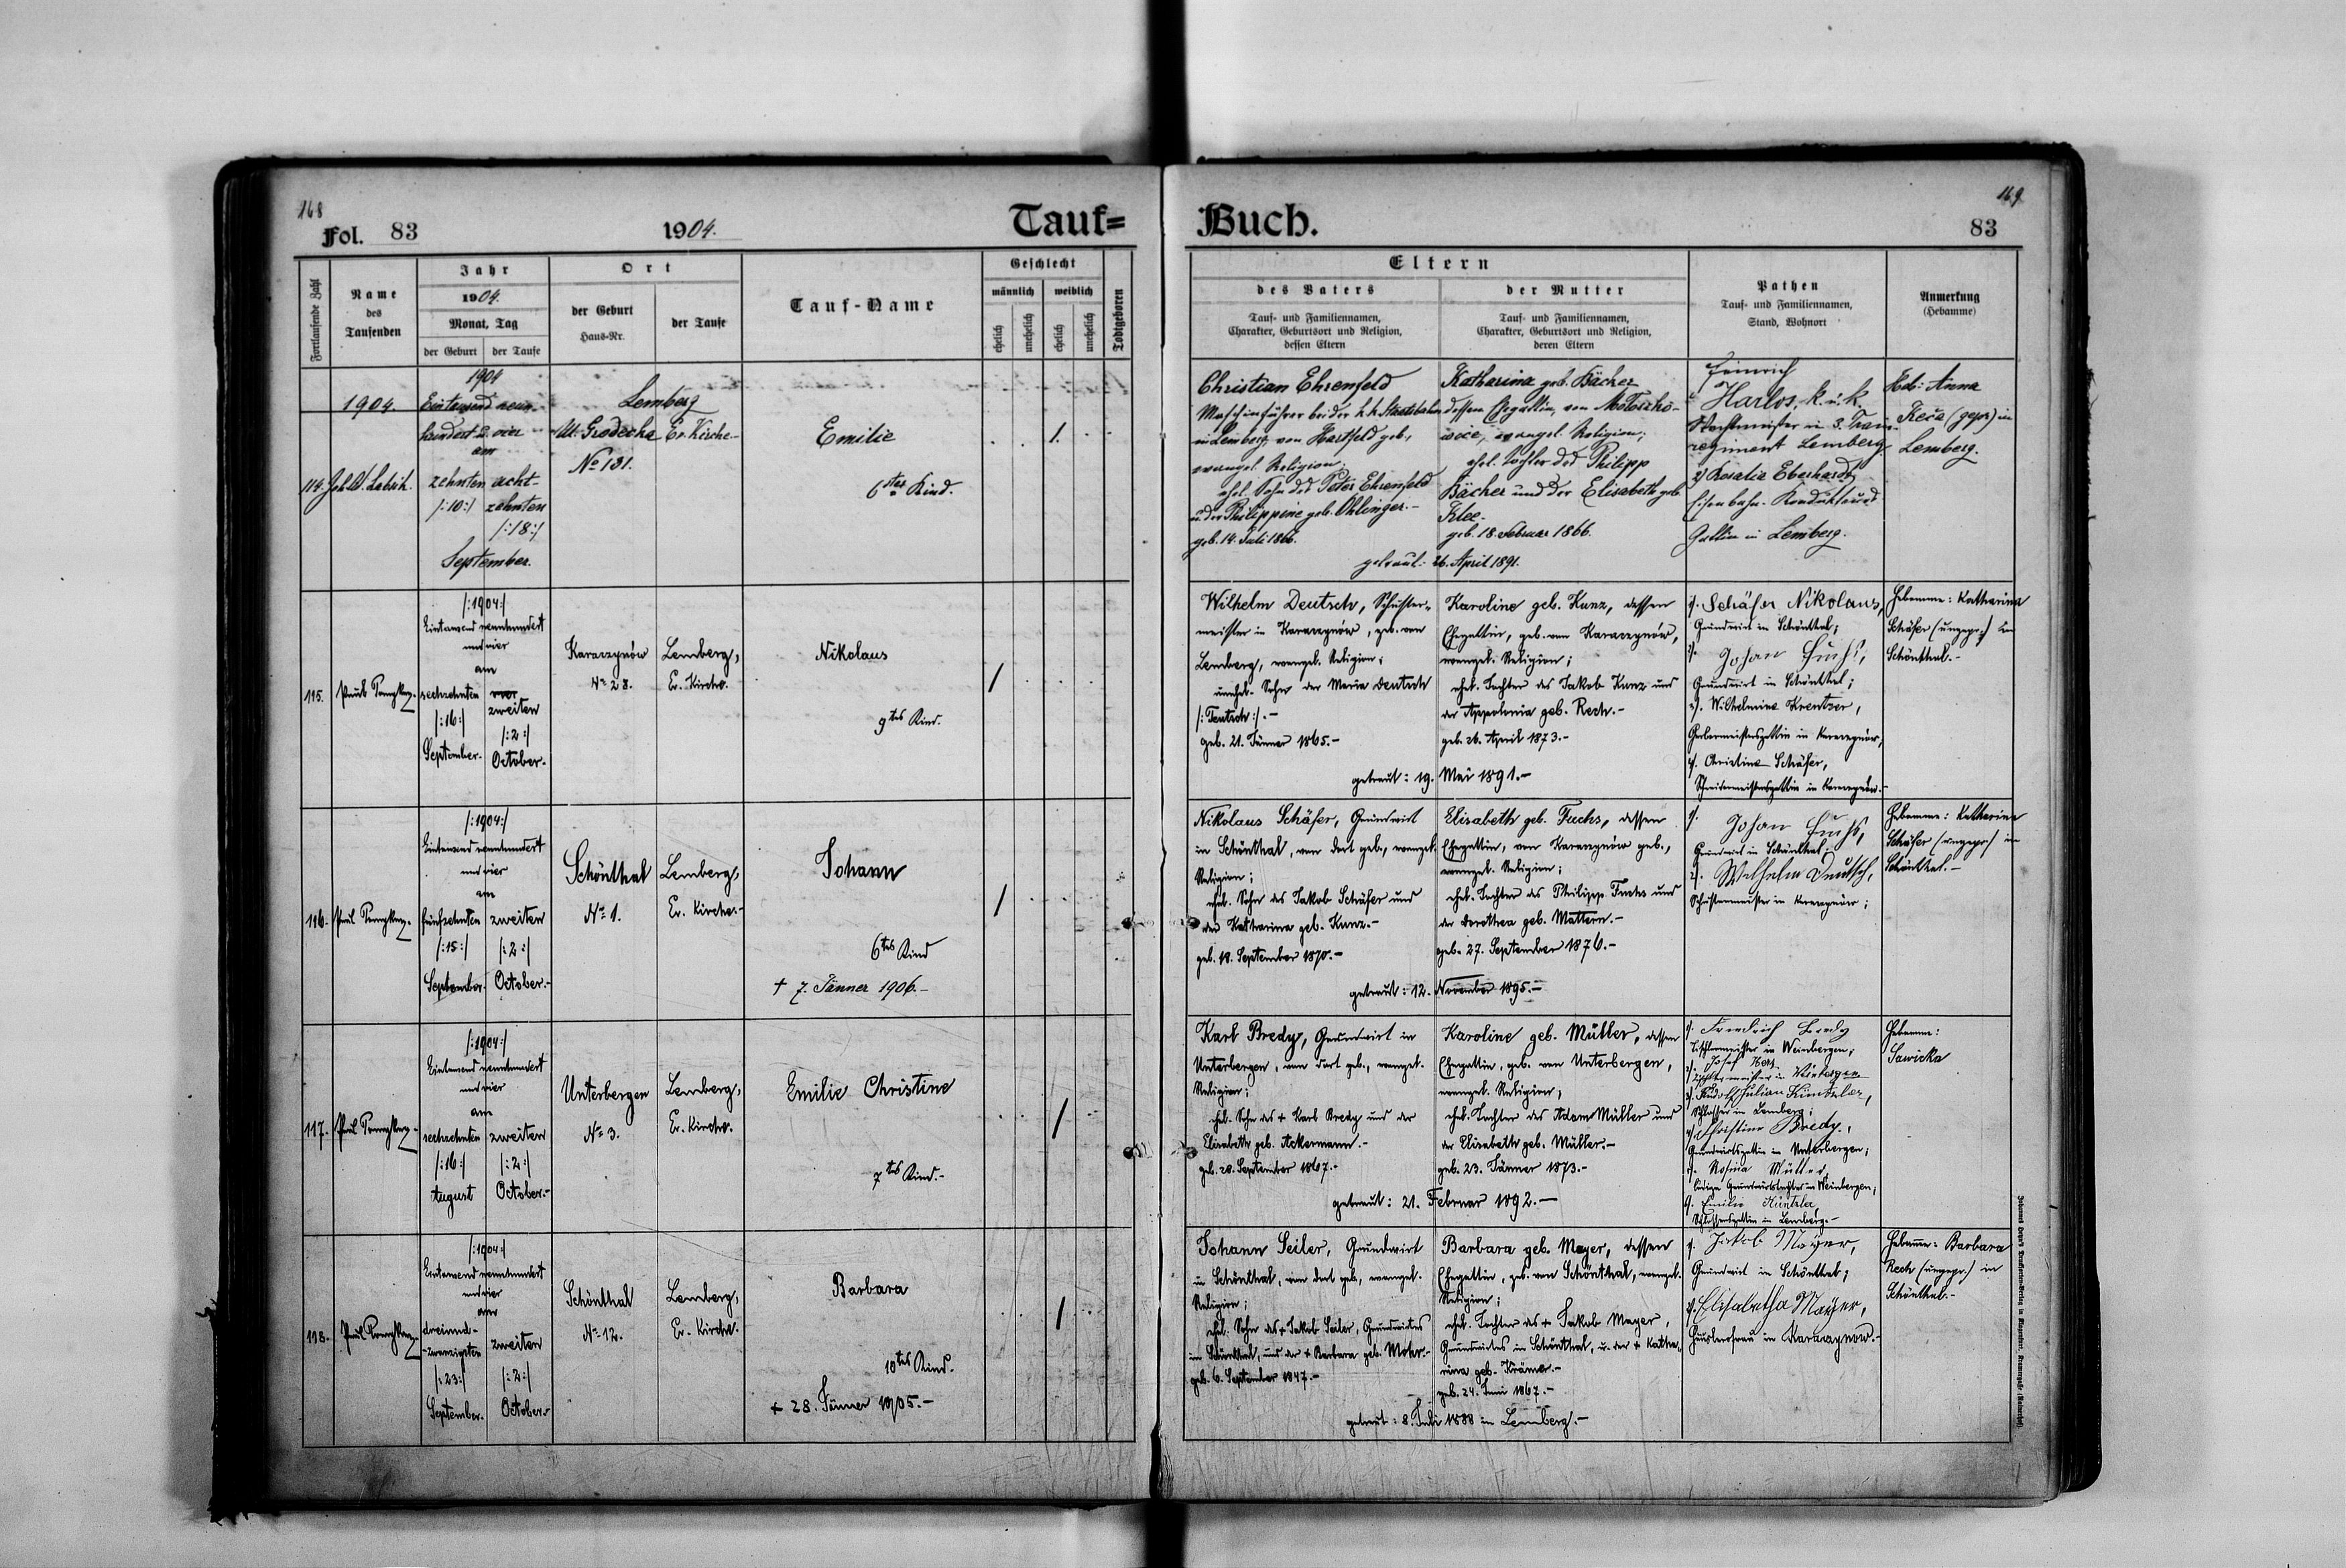 168
Fol. 83
1904.
Tauf=
Fortlaufende Zahl
Name
des
Taufenden
Jahr
1904.
Monat, Tag
der Geburt
der Taufe
Ort
der Geburt
Haus-Nr.
der Taufe
Tauf-Name
Geschlecht
männlich
weiblich
ehelich
unehelich
ehelich
unehelich
Todtgeboren
1904.
114.
1904
Eintausend neun-
hundert u. vier
am
zehnten
/:10:/
acht-
zehnten
/:18:/
September.
Lemberg
Ul. Grodecka
No 131.
Ev. Kirche
Emilie
6tes Kind.
1.
115.
/:1904:/
Eintausend neunhundert
und vier
am
sechzehnten
/:16:/
September.
zweiten
/:2:/
October.
Karaczynów
No 28.
Lemberg,
Ev. Kirche.
Nikolaus
9tes Kind.
/
116.
/:1904:/
Eintausend neunhundert
und vier
am
fünfzehnten
/:15:/
September.
zweiten
/:2:/
October.
Schönthal
No 1.
Lemberg,
Ev. Kirche.
Johann
6tes Kind
† 7. Jänner 1906.
/
117.
/:1904:/
Eintausend neunhundert
und vier
am
sechzehnten
/:16:/
August
zweiten
/:2:/
October.
Unterbergen
No 3.
Lemberg,
Ev. Kirche.
Emilie Christine
7tes Kind.
/
118.
/:1904:/
Eintausend neunhundert
und vier
am
dreiund-
zwanzigsten
/:23:/
September.
zweiten
/:2:/
October.
Schönthal
No 12.
Lemberg,
Ev. Kirche.
Barbara
10tes Kind.
† 28. Jänner 1905.
/
169
Buch.
83
Eltern
des Vaters
Tauf- und Familiennamen,
Charakter, Geburtsort und Religion,
dessen Eltern
der Mutter
Tauf- und Familiennamen,
Charakter, Geburtsort und Religion,
deren Eltern
Pathen
Tauf- und Familiennamen,
Stand, Wohnort
Anmerkung
(Hebamme)
Christian Ehrenfeld
Maschinführer bei der k.k. Staatsbahn
in Lemberg, von Hartfeld geb.,
evangel. Religion;
ehel. Sohn des Peter Ehrenfeld
u. der Philippine geb. Ohlinger.
geb. 14. Juli 1866.
Katharina geb. Bächer
dessen Ehegattin, von
evangel. Religion;
ehel. Tochter des Philipp
Bächer und der Elisabeth geb.
Klee.
geb. 18. Februar 1866.
getraut: 26. April 1891.
Heinrich
Harlos, k. u. k.
Wachtmeister in 3. Train-
regiment Lemberg
2) Rosalia Eberhardt
Eisenbahn-Kondukteurs
Gattin in Lemberg.
Heb: Anna
(gepr) in
Lemberg.
Wilhelm Deutsch, Schuster-
meister in Karaczynów, geb. von
Lemberg, evangel. Religion;
unehel. Sohn der Maria Deutsch
/:Teutsch:/.
geb. 21. Jänner 1865.
Karoline geb. Kunz, dessen
Ehegattin, geb. von Karaczynów,
evangel. Religion;
ehel. Tochter des Jakob Kunz und
der Appolonia geb. Rech.
geb. 26. April 1873.
getraut: 19. Mai 1891.
1). Schäfer Nikolaus,
Grundwirt in Schönthal;
2). Johan Fuchs,
Grundwirt in Schönthal;
3). Wilhelmine Krentzer,
4). Christine Schäfer,
Hebamme: Katharina
Schäfer (ungepr.) in
Schönthal.
Nikolaus Schäfer, Grundwirt
in Schönthal, von dort geb., evangel.
Religion;
ehel. Sohn des Jakob Schäfer und
der Katharina geb. Kunz.
geb. 18. September 1870.
Elisabeth geb. Fuchs, dessen
Ehegattin, von Karaczynów geb.,
evangel. Religion;
ehel. Tochter des Philipp Fuchs und
der Dorothea geb. Mattern.
geb. 27. September 1876.
getraut: 12. November 1895.
1). Johan Fuchs,
Grundwirt in Schönthal;
2). Wilhelm Deutsch,
Schustermeister in Karaczynów;
Hebamme: Katharina
Schäfer (ungepr.) in
Schönthal.
Karl Bredy, Grundwirt in
Unterbergen, von dort geb., evangel.
Religion;
ehel. Sohn des † Karl Bredy und der
Elisabeth geb. Ackermann.
geb. 28. September 1867.
Karoline geb. Müller, dessen
Ehegattin, geb. von Unterbergen,
evangel. Religion;
ehel. Tochter des Adam Müller und
der Elisabeth geb. Müller.
geb. 23. Jänner 1873.
getraut: 21. Februar 1892.
1). Friedrich Bredy
Tischlermeister in Weinbergen;
2). Josef
3). Rudolf Julian Küntzler,
Schlosser in Lemberg;
4). Christine Bredy,
Grundwirtsgattin in Unterbergen;
5). Rosina Müller,
ledige Grundwirtstochter in Weinbergen;
6). Emilie Küntzler,
Schlossersgattin in Lemberg.
Hebamme:
Sawicka
Johann Seiler, Grundwirt
in Schönthal, von dort geb., evangel.
Religion;
ehel. Sohn des † Jakob Seiler, Grundwirtes
in Schönthal, und der † Barbara geb. Mohr.
geb. 6. September 1847.
Barbara geb. Mayer, dessen
Ehegattin, geb. von Schönthal, evangel.
Religion;
ehel. Tochter des † Jakob Mayer,
Grundwirtes in Schönthal, u. der † Katha-
rina geb. Krämer.
geb. 24. Juni 1867.
getraut: 8. Juli 1888 in Lemberg.
1). Jakob Mayer,
Grundwirt in Schönthal;
2). Elisabetha Mayer,
Hebamme: Barbara
Rech (ungepr.) in
Schönthal.